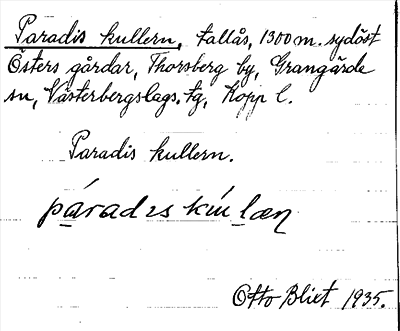 Paradis kullern, tallås, 1300 m. sydöst
Östers gårdar, Thorsberg by, Grangärde
sn, Västerbergslags. tg, Kopp l.
Paradis kullern.
páradıs kíu̇læn
Otto Blixt 1935.